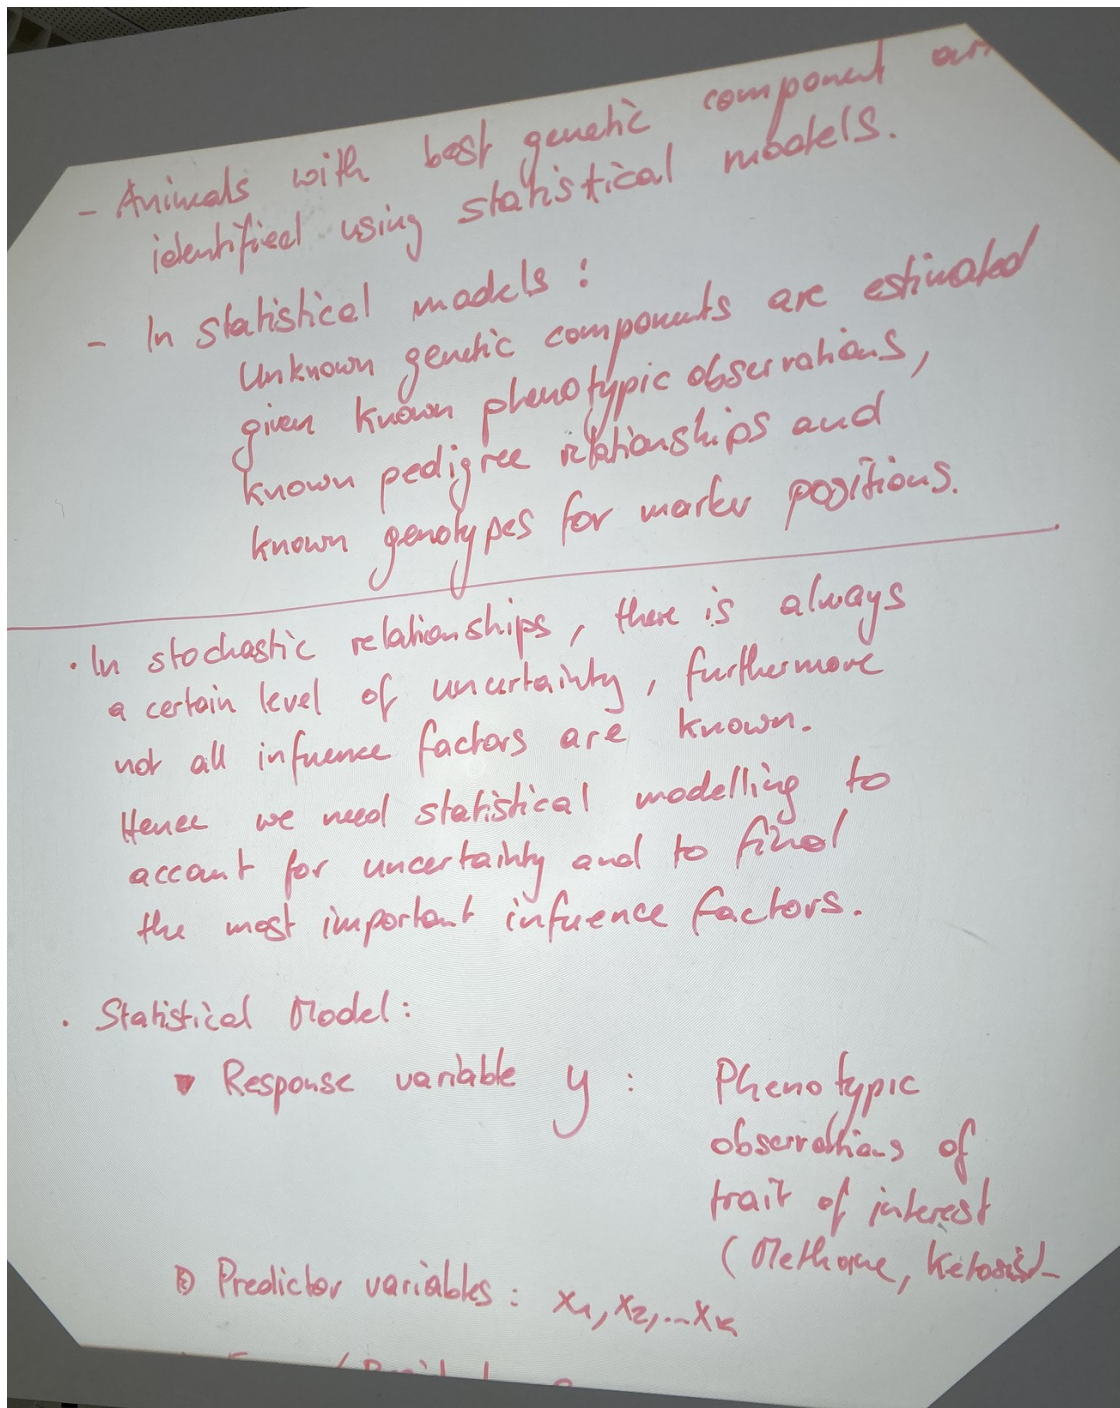 - Animals with best genetic component are
identified using statistical models.
- In statistical models :
Unknown genetic components are estimated
given known phenotypic observations,
known pedigree relationships and
known genotypes for marker positions.
· In stochastic relationships, there is always
a certain level of uncertainty, furthermore
not all infuence factors are known.
Hence we need statistical modelling to
account for uncertainty and to find
the most important infuence factors.
· Statistical Model :
Response variable y : Phenotypic
observations of
trait of interest
(Methane, Ketosis)
Predictor variables : x1, x2, ... xk